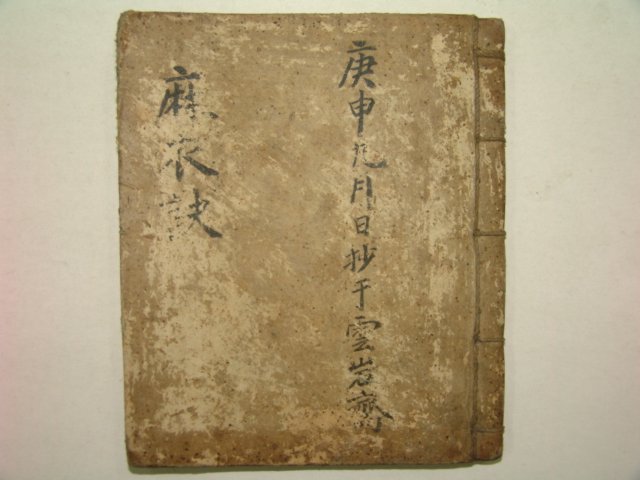 庚申九月日抄于雲岩齋
麻衣訣